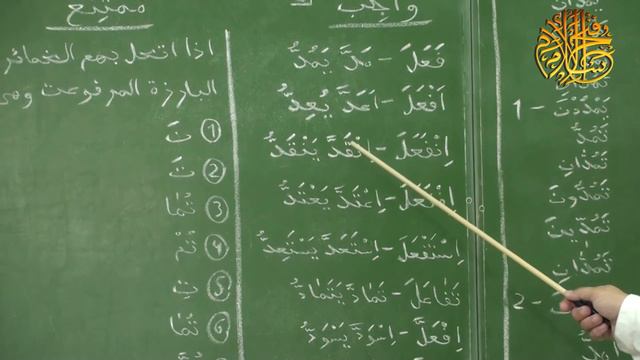 تَمُدَّانِ
1 - تَمْدُدْنَ
تَمُدُّ
تَمُدَّانِ
تَمُدُّونَ
تَمُدِّينَ
تَمُدَّانِ
2 -
واجب
فَعَلَ - مَدَّ يَمُدُّ
اَفْعَلَ - اَعَدَّ يُعِدُّ
اِنْفَعَلَ - اِنْقَدَّ يَنْقَدُّ
اِفْتَعَلَ - اِعْتَدَّ يَعْتَدُّ
اِسْتَفْعَلَ - اِسْتَعَدَّ يَسْتَعِدُّ
تَفَاعَلَ - تَمَادَّ يَتَمَادُّ
اِفْعَلَّ - اِسْوَدَّ يَسْوَدُّ
ممتنع
اذا اتصل بهم الضمائر
البارزة المرفوعت
① تَ
② تَ
③ تُمَا
④ تُمْ
⑤ تِ
⑥ تُمَا